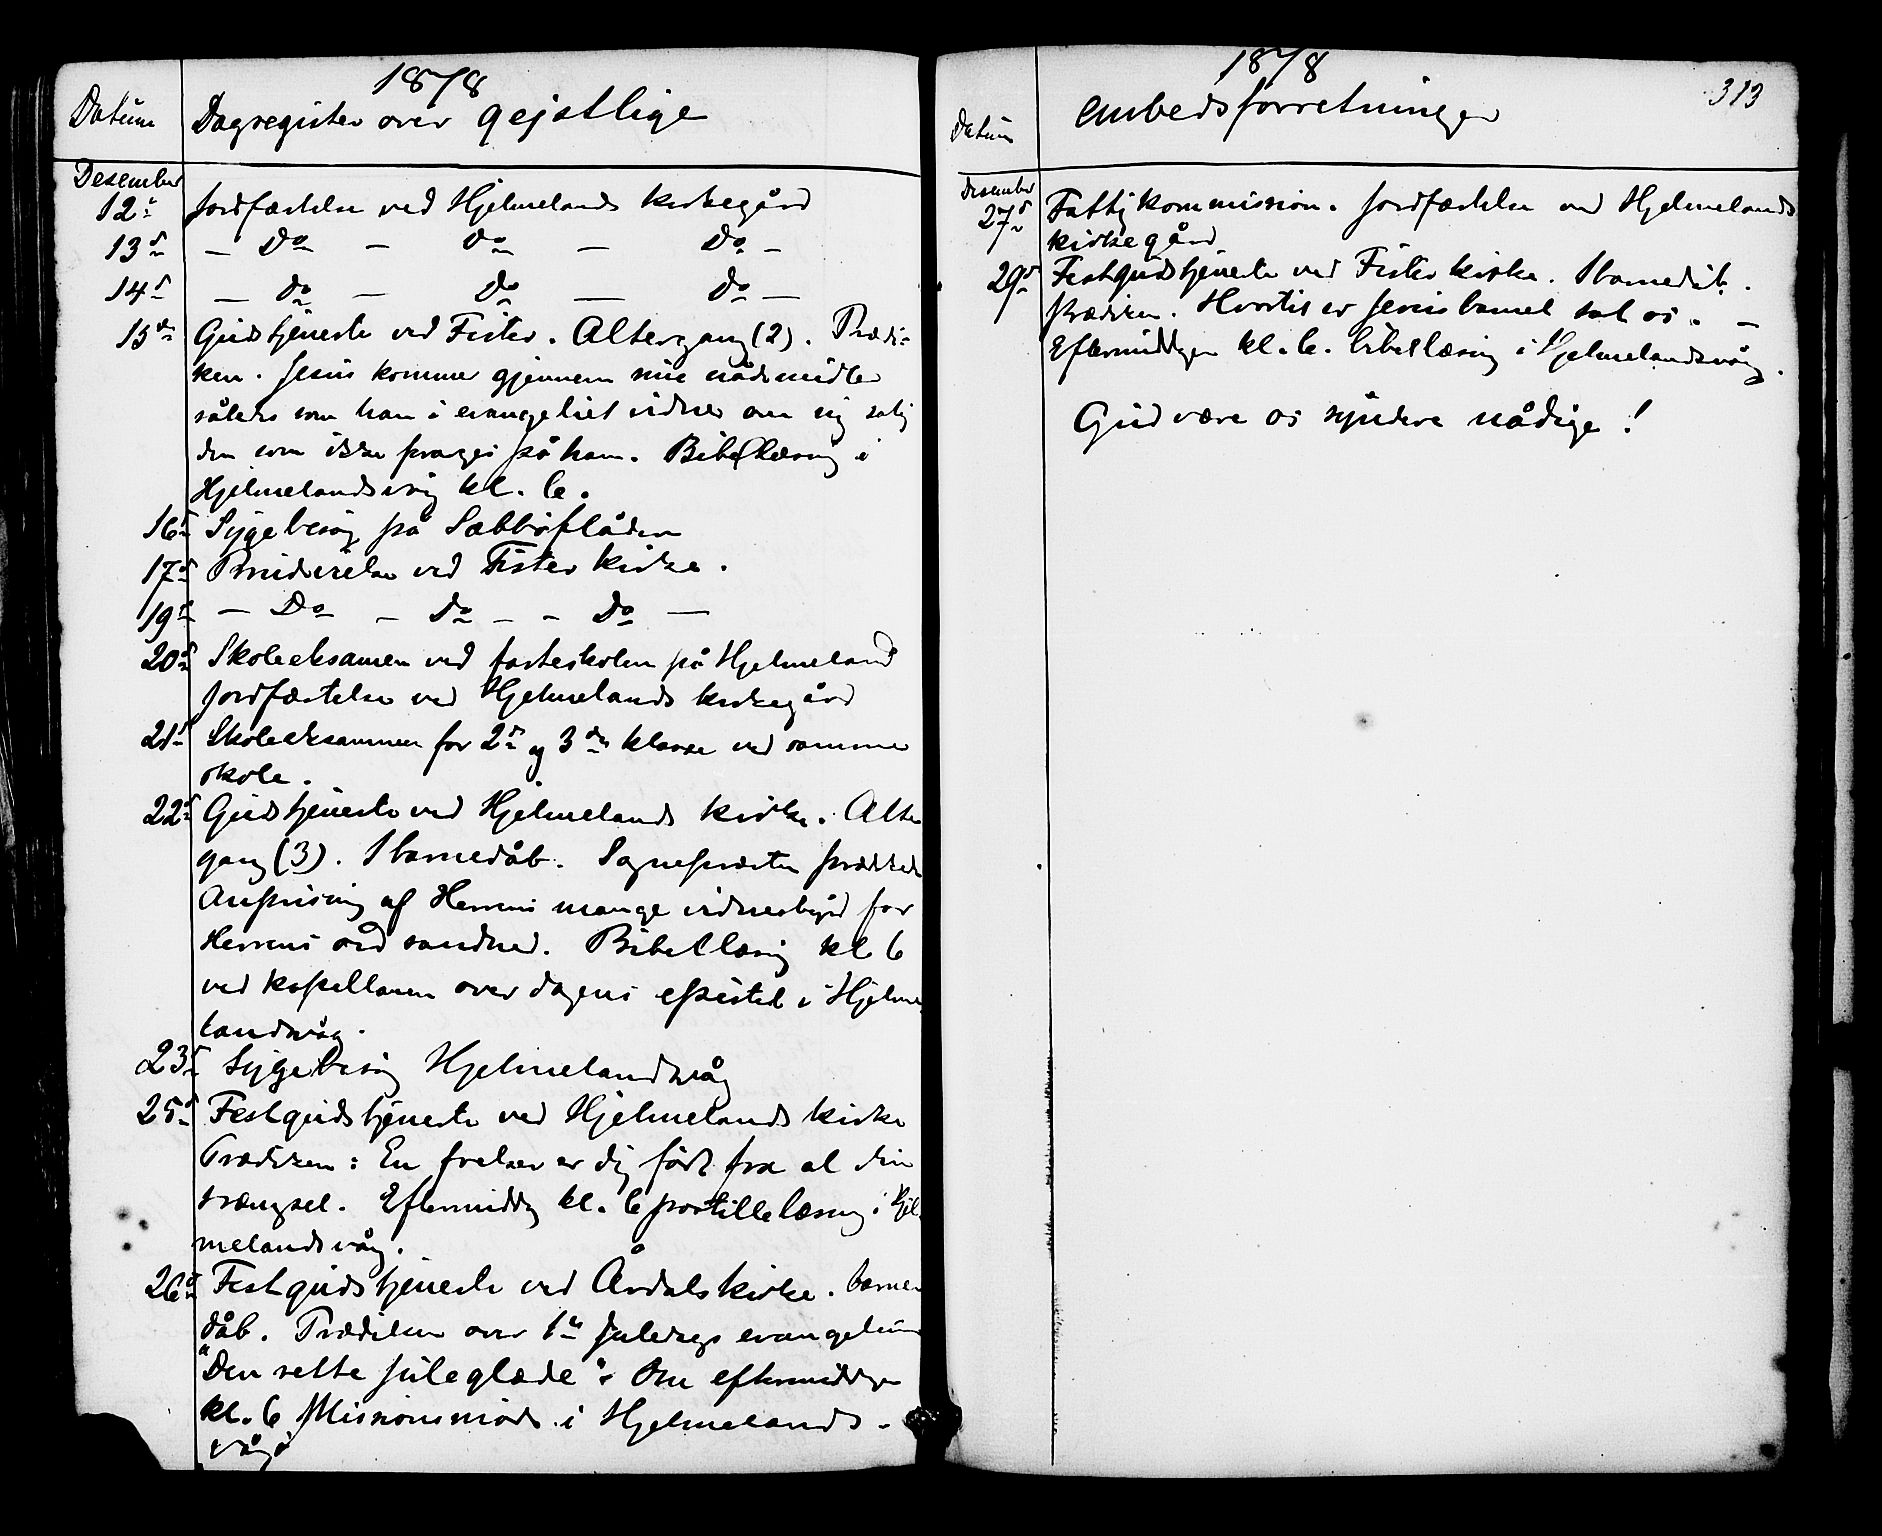 1878
Datum Dagregister over gejstlige
Desember
12te Jordfæstelse ved Hjelmelands kirkegård
13de — Do — Do — Do —
14de — do — do — do —
15de Gudstjeneste ved Fister. Altergang (2). Prædi-
ken. Jesus kommer gjennem sine nådemidler
således som han i evangeliet vidner om sig salig
den som ikke forarges på ham. Bibellæsning i
Hjelmelandsvåg kl. 6.
16de Sygebesøg på Sæbbøflåden
17de Brudevielse ved Fister kirke.
19de — Do — do — — Do —
20de Skoleeksamen ved fasteskolen på Hjelmeland
Jordfæstelse ved Hjelmelands kirkegård
21de Skoleeksammen for 2de og 3die klasse ved samme
skole.
22de Gudstjeneste ved Hjelmelands kirke. Alter
gang (3). 1 barnedåb. Sognepresten prædikede
Anprisning af Herrens mange vidnesbyrd for
Herrens ord sandhed. Bibellæsnig kl 6
ved kapellanen over dagens epistel i Hjelme
landsvåg.
23de Sygebesøg Hjelmelandsvåg
25de Festgudstjeneste ved Hjelmelands kirke
Prædiken: En frelser er dig født fra al din
trængsel. Eftermiddag kl. 6 postillelæsning i Hjel
melandsvåg.
26de Festgudstjeneste ved Årdals kirke. barne
dåb. Prædiken over 1te juledags evangelium
"Den rette juleglæde". Om eftermiddagen
kl. 6 Missionsmøde i Hjelmelands-
våg
1878
313
Datum embedsforretninger
Desember
27de Fattigkommission. Jordfæstelse ved Hjelmelands
kirkegård
29de Festgudstjeneste ved Fister kirke. 1 barnedåb.
Prædiken. Hvortil er Jesusbarnet sat os. —
Eftermiddagen kl. 6. bibellæsning i Hjelmelandsvåg.
Gud være os syndere nådige!